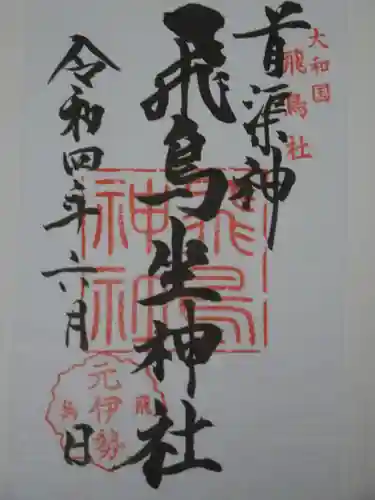 大和国
飛鳥社
首渠神
飛鳥坐神社
令和四年六月 日
飛鳥神社
元伊勢
飛鳥